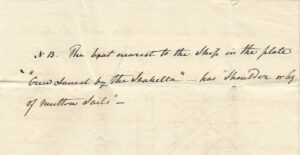 N B. The boat nearest to the Ship in the plate
"Crew saved by the Isabella" – has "Shoulder or leg
of mutton Sails" –